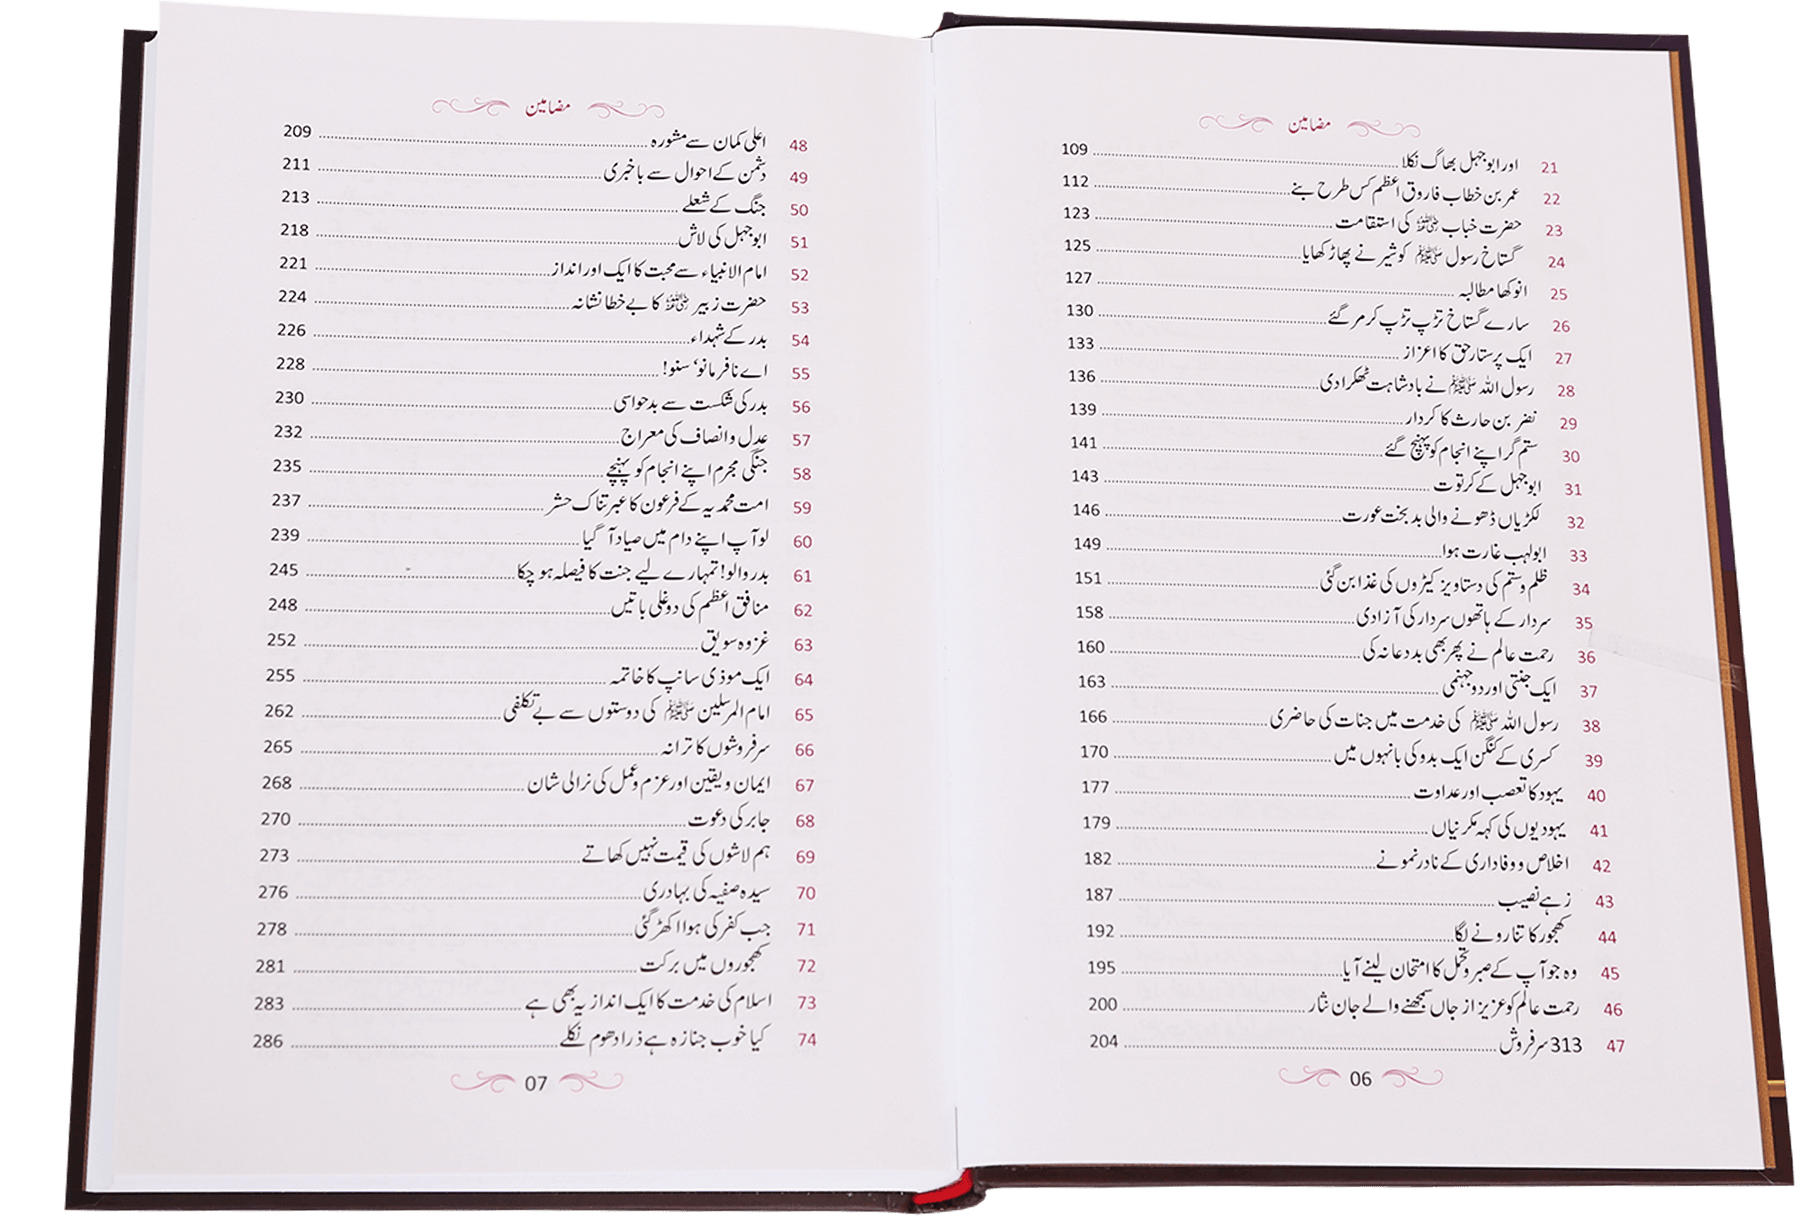 مضامین
21 اور ابوجہل بھاگ نکلا 109
22 عمر بن خطاب فاروق اعظم کس طرح بنے 112
23 حضرت خباب رضی اللہ عنہ کی استقامت 123
24 گستاخ رسول ﷺ کو شیر نے پھاڑ کھایا 125
25 انوکھا مطالبہ 127
26 سارے گستاخ تڑپ تڑپ کر مر گئے 130
27 ایک پرستار حق کا اعزاز 133
28 رسول اللہ ﷺ نے بادشاہت ٹھکرا دی 136
29 نضر بن حارث کا کردار 139
30 ستم گر اپنے انجام کو پہنچ گئے 141
31 ابوجہل کے کرتوت 143
32 لکڑیاں ڈھونے والی بد بخت عورت 146
33 ابولہب غارت ہوا 149
34 ظلم و ستم کی دستاویز کیڑوں کی غذا بن گئی 151
35 سردار کے ہاتھوں سردار کی آزادی 158
36 رحمت عالم نے پھر بھی بددعا نہ کی 160
37 ایک جنتی اور دو جہنمی 163
38 رسول اللہ ﷺ کی خدمت میں جنات کی حاضری 166
39 کسری کے کنگن ایک بدو کی بانہوں میں 170
40 یہود کا تعصب اور عداوت 177
41 یہودیوں کی کہہ مکرنیاں 179
42 اخلاص و وفاداری کے نادر نمونے 182
43 زہے نصیب 187
44 کھجور کا تنا رونے لگا 192
45 وہ جو آپ کے صبر و تحمل کا امتحان لینے آیا 195
46 رحمت عالم کو عزیز از جاں سمجھنے والے جان نثار 200
47 313 سرفروش 204
06
مضامین
48 اعلی کمان سے مشورہ 209
49 دشمن کے احوال سے باخبری 211
50 جنگ کے شعلے 213
51 ابوجہل کی لاش 218
52 امام الانبیاء سے محبت کا ایک اور انداز 221
53 حضرت زبیر رضی اللہ عنہ کا بے خطا نشانہ 224
54 بدر کے شہداء 226
55 اے نافرمانو، سنو! 228
56 بدر کی شکست سے بدحواسی 230
57 عدل و انصاف کی معراج 232
58 جنگی مجرم اپنے انجام کو پہنچے 235
59 امت محمدیہ کے فرعون کا عبرتناک حشر 237
60 لو آپ اپنے دام میں صیاد آ گیا 239
61 بدر والو! تمہارے لیے جنت کا فیصلہ ہو چکا 245
62 منافق اعظم کی دوغلی باتیں 248
63 غزوہ سویق 252
64 ایک موذی سانپ کا خاتمہ 255
65 امام المرسلین ﷺ کی دوستوں سے بے تکلفی 262
66 سرفروشوں کا ترانہ 265
67 ایمان و یقین اور عزم و عمل کی نرالی شان 268
68 جابر کی دعوت 270
69 ہم لاشوں کی قیمت نہیں کھاتے 273
70 سیدہ صفیہ کی بہادری 276
71 جب کفر کی ہوا اکھڑ گئی 278
72 کھجوروں میں برکت 281
73 اسلام کی خدمت کا ایک انداز یہ بھی ہے 283
74 کیا خوب جنازہ ہے ذرا دھوم نکلے 286
07